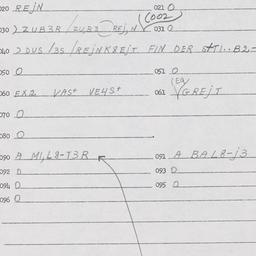 020 REJN 021 O
(COO2)
030 ) ZUB3R /ZUB3 REJ, N 031 O
040 ) DVS /3S /REJNK8EJT FIN DER STI..B2=
050 O 051 O
060 EX2 VAS+ VE4S+ 061 YGREJT
070 O
080 O
090 A MI,L8-T3R 091 A BAL8-J3
092 O 093 O
094 O 095 O
096 O